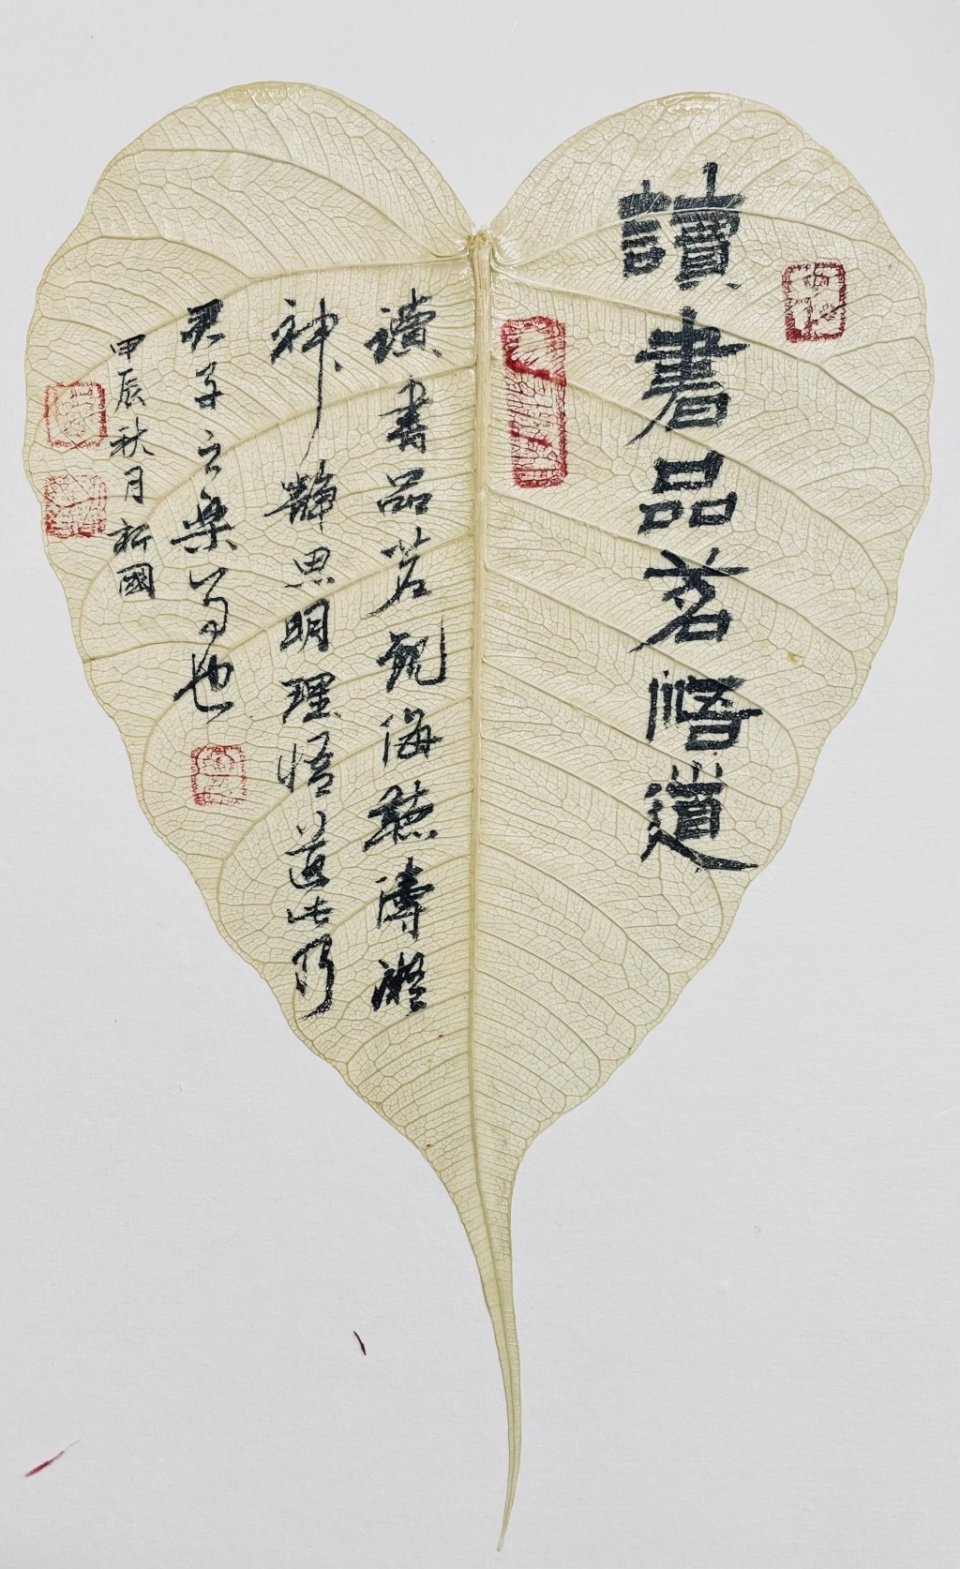 讀書品茗悟道
读書品茗觀海聽濤凝
神静思明理悟道此乃
君子之樂事也
甲辰秋月新國